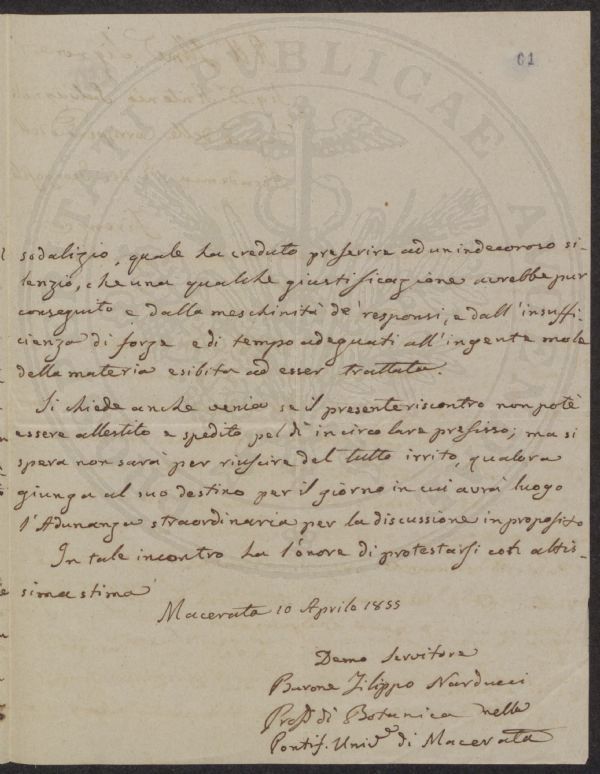 61
sodalizio, quale ha creduto preferire ad un indecoroso si-
lenzio, che una qualche giustificazione avrebbe pur
conseguito e dalla meschinità de' responsi, e dall'insuffi-
cienza di forze e di tempo adeguati all'ingente mole
della materia esibita ad esser trattata.
Si chiede anche venia se il presente riscontro non potè
essere allestito e spedito pel dì in circolare prefisso; ma si
spera non sarà per riuscire del tutto irrito, qualora
giunga al suo destino per il giorno in cui avrà luogo
l'Adunanza straordinaria per la discussione in proposito
In tale incontro ha l'onore di protestarsi con altis-
sima stima
Macerata 10 Aprile 1855
Demo Servitore
Barone Filippo Narducci
Profe di Botanica nella
Pontif. Unive di Macerata